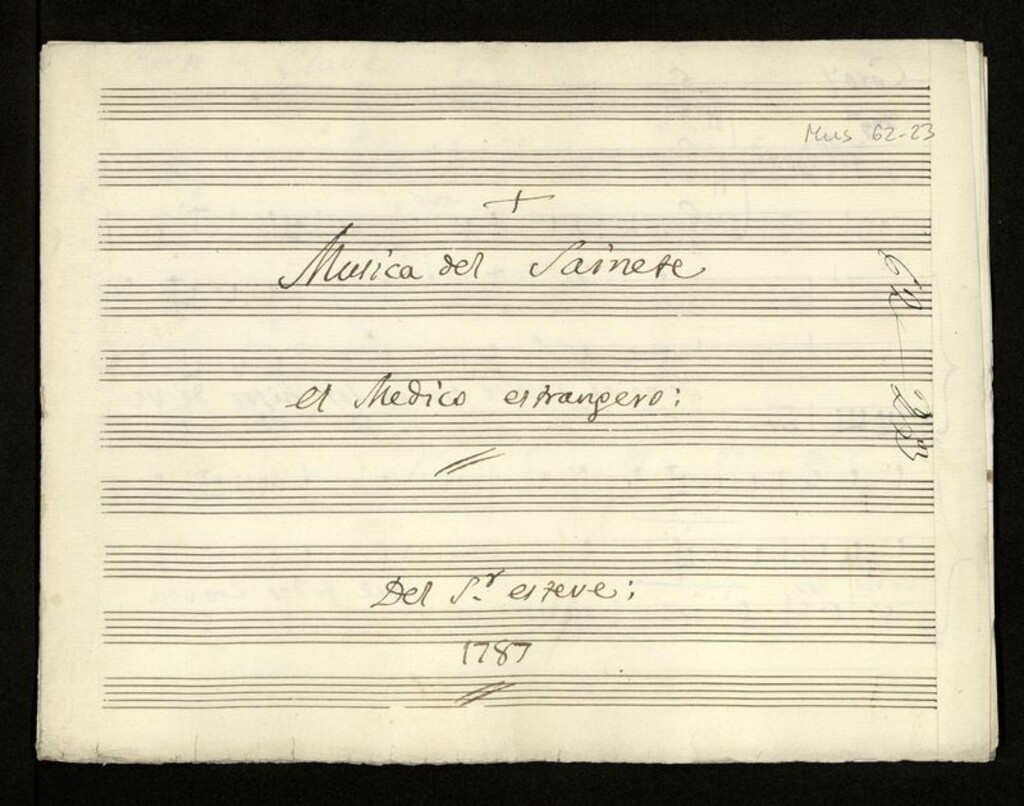 Mus 62-23
+
Musica del Sainete
el Medico estrangero:
Del S.r esteve:
1787